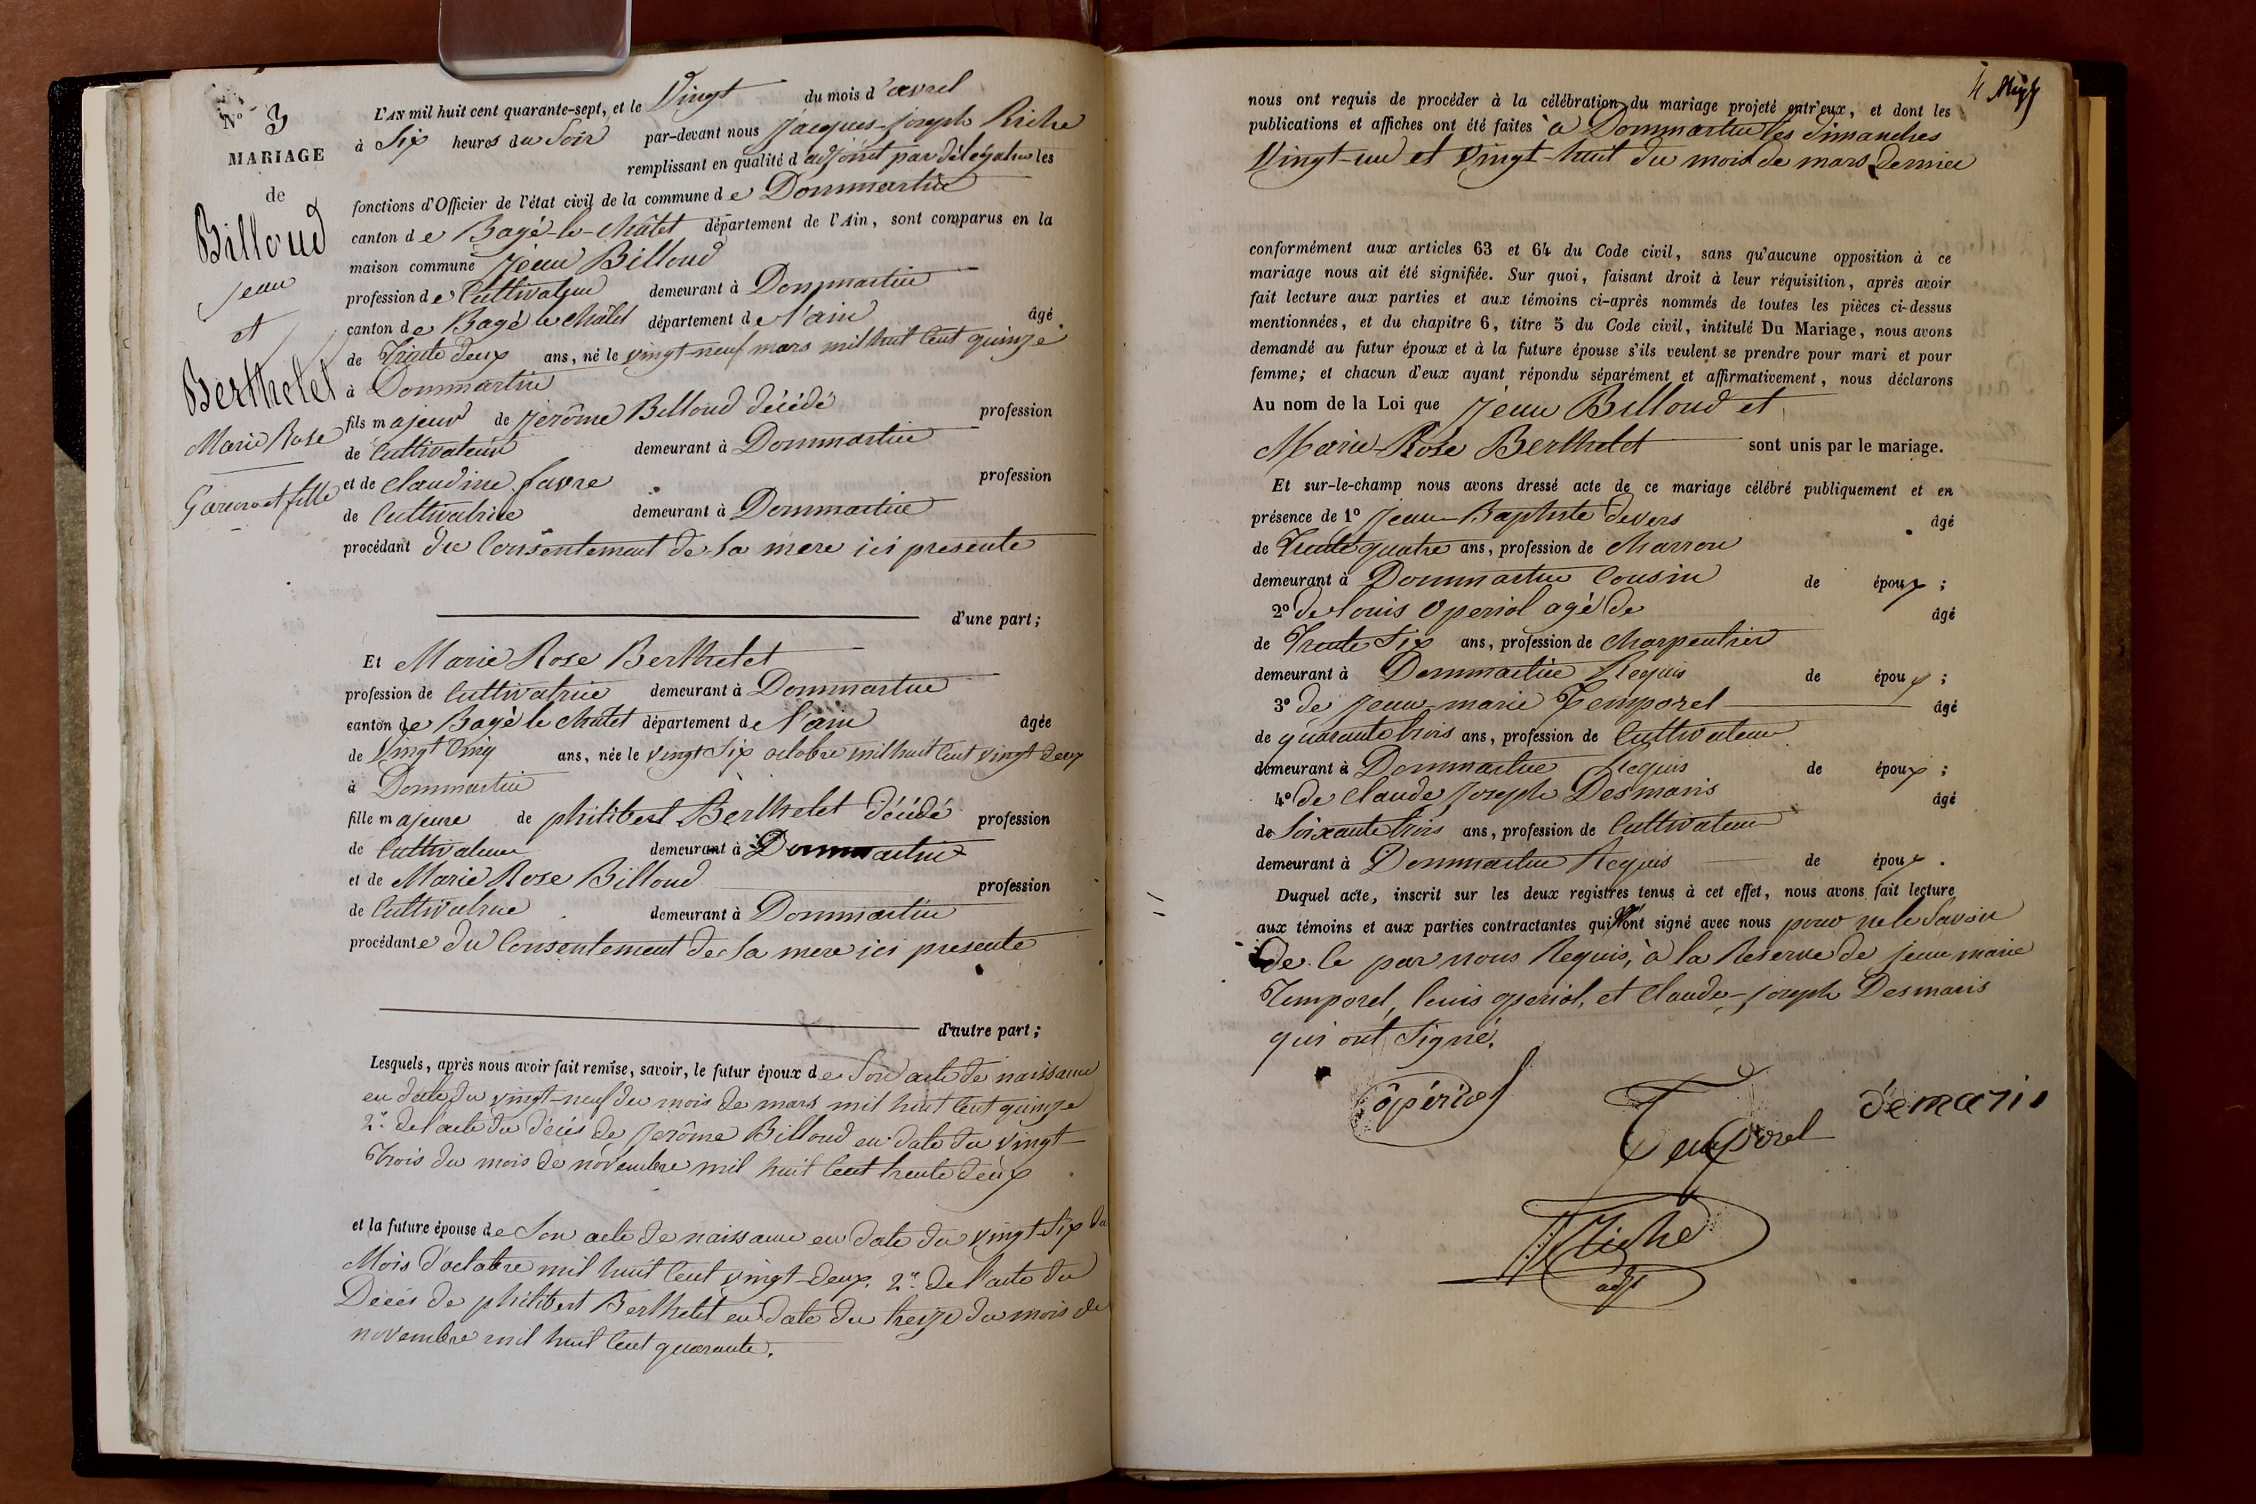 N° 3
MARIAGE
de
Billoud
Jean
et
Berthelet
Marie Rose
Garçon et fille
L'AN mil huit cent quarante-sept, et le Vingt du mois d'avril
à Six heures du Soir par-devant nous Jacques-Joseph Riche
remplissant en qualité d'adjoint par délégation les
fonctions d'Officier de l'état civil de la commune de Dommartin
canton de Bagé-le-Châtel département de l'Ain, sont comparus en la
maison commune Jean Billoud
profession de Cultivateur demeurant à Dommartin
canton de Bagé le Châtel département de l'ain âgé
de Trente deux ans, né le vingt-neuf mars mil huit Cent quinze
à Dommartin
fils majeur de Jérôme Billoud décédé profession
de Cultivateur demeurant à Dommartin
et de Claudine favre profession
de Cultivatrice demeurant à Dommartin
procédant du Consentement de Sa mere ici presente
d'une part;
Et Marie Rose Berthelet
profession de Cultivatrice demeurant à Dommartin
canton de Bagé le Châtel département de l'ain âgée
de Vingt Cinq ans, née le vingt Six octobre mil huit Cent vingt deux
à Dommartin
fille majeure de philibert Berthelet décédé profession
de Cultivateur demeurant à Dommartin
et de Marie Rose Billoud profession
de Cultivatrice demeurant à Dommartin
procédante du Consentement de Sa mere ici presente
d'autre part;
Lesquels, après nous avoir fait remise, savoir, le futur époux de Son acte de naissance
en date du vingt-neuf du mois de mars mil huit Cent quinze
2° de l'acte du décès de Jerôme Billoud en date du vingt
Trois du mois de novembre mil huit Cent trente deux
et la future épouse de Son acte de naissance en date du vingt-Six du
Mois d'octobre mil huit Cent vingt-deux. 2° de l'acte du
Décès de philibert Berthelet en date du treize du mois de
novembre mil huit Cent quarante.
nous ont requis de procéder à la célébration du mariage projeté entr'eux, et dont les
publications et affiches ont été faites à Dommartin les dimanches
Vingt-un et Vingt-huit du mois de mars dernier
conformément aux articles 63 et 64 du Code civil, sans qu'aucune opposition à ce
mariage nous ait été signifiée. Sur quoi, faisant droit à leur réquisition, après avoir
fait lecture aux parties et aux témoins ci-après nommés de toutes les pièces ci-dessus
mentionnées, et du chapitre 6, titre 5 du Code civil, intitulé Du Mariage, nous avons
demandé au futur époux et à la future épouse s'ils veulent se prendre pour mari et pour
femme; et chacun d'eux ayant répondu séparément et affirmativement, nous déclarons
Au nom de la Loi que Jean Billoud et
Marie-Rose Berthelet sont unis par le mariage.
Et sur-le-champ nous avons dressé acte de ce mariage célébré publiquement et en
présence de 1° Jean-Baptiste devers âgé
de Trente quatre ans, profession de Charron
demeurant à Dommartin Cousin de époux;
2° de Louis Operiol agé de âgé
de Trente Six ans, profession de Charpentier
demeurant à Dommartin Requis de époux;
3° de Jean-marie Temporel âgé
de quarante trois ans, profession de Cultivateur
demeurant à Dommartin Requis de époux;
4° de Claude Joseph Desmaris âgé
de Soixante trois ans, profession de Cultivateur
demeurant à Dommartin Requis de époux.
Duquel acte, inscrit sur les deux registres tenus à cet effet, nous avons fait lecture
aux témoins et aux parties contractantes qui n'ont signé avec nous pour ne le Savoir
de ce par nous Requis, à la Reserve de jean marie
Temporel, Louis operiol, et Claude-joseph Desmaris
qui ont Signé.
opériol
Temporel
démaris
Riche
adjt